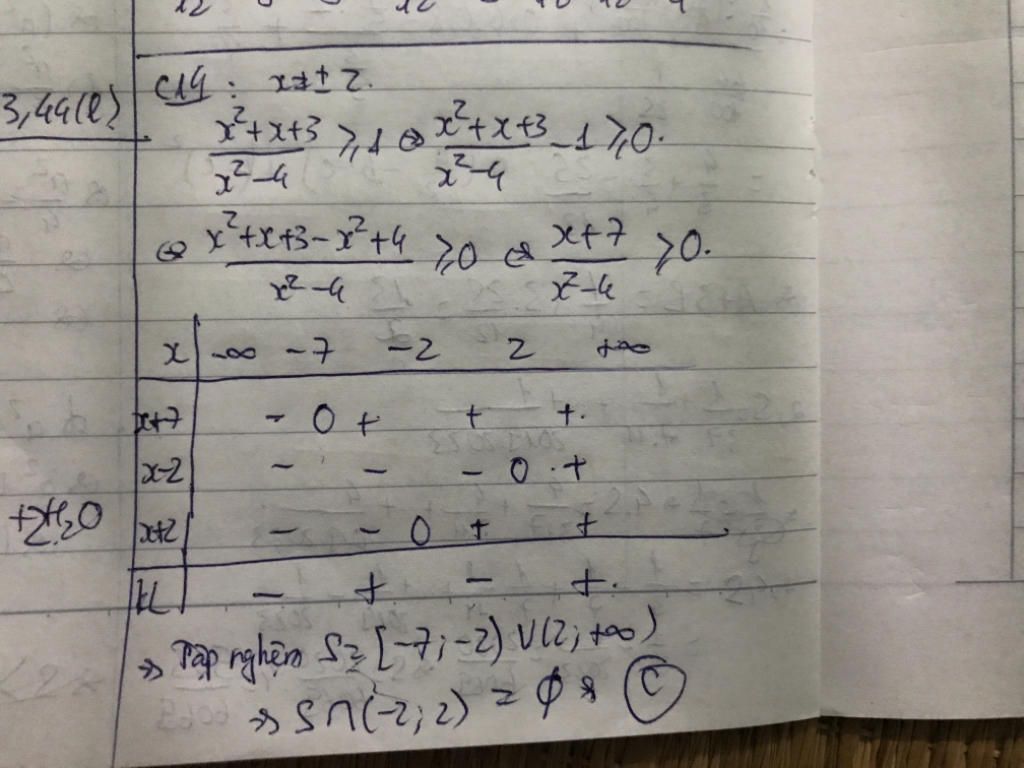 3,44(l)
C14: x ≠ ± 2.
x²+x+3 / x²-4 ≥ 1 ⇔ x²+x+3 / x²-4 - 1 ≥ 0.
⇔ x²+x+3-x²+4 / x²-4 ≥ 0 ⇔ x+7 / x²-4 ≥ 0.
x -∞ -7 -2 2 +∞
x+7 - 0 + + +.
x-2 - - - 0 +
+2H₂O
x+2 - - 0 + +
KL - + - +.
⇒ Tập nghệm S = [-7; -2) U (2; +∞)
⇒ S ∩ (-2; 2) = ∅ ⇒ C